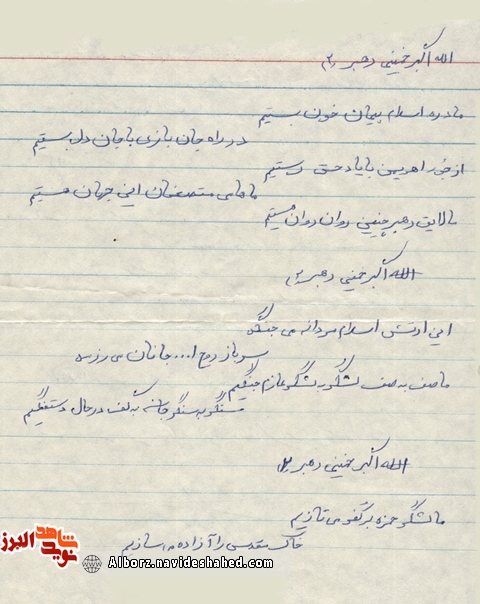 الله اکبر خمینی رهبر (۲
ما در ره اسلام پیمان خون بستیم
در راه جان بازی با جان دل بستیم
از جور اهریمن با یاد حق رستیم
ما حامی مستضعفان این جهان هستیم
ما لایق رهبر چنین دوان دوان هستیم
الله اکبر خمینی رهبر (۲
این ارتش اسلام مردانه می جنگد
سرباز روح ا... جانان می رزمد
ما صف به صف لشگر به لشگر عازم جنگیم
سنگر به سنگر به کف در حال
الله اکبر خمینی رهبر (۲
ما لشگر حمزه بر کفر می تازیم
خاک مقدس را آزاده می سازیم
شاهد
نوید
البرز
Alborz.navideshahed.com